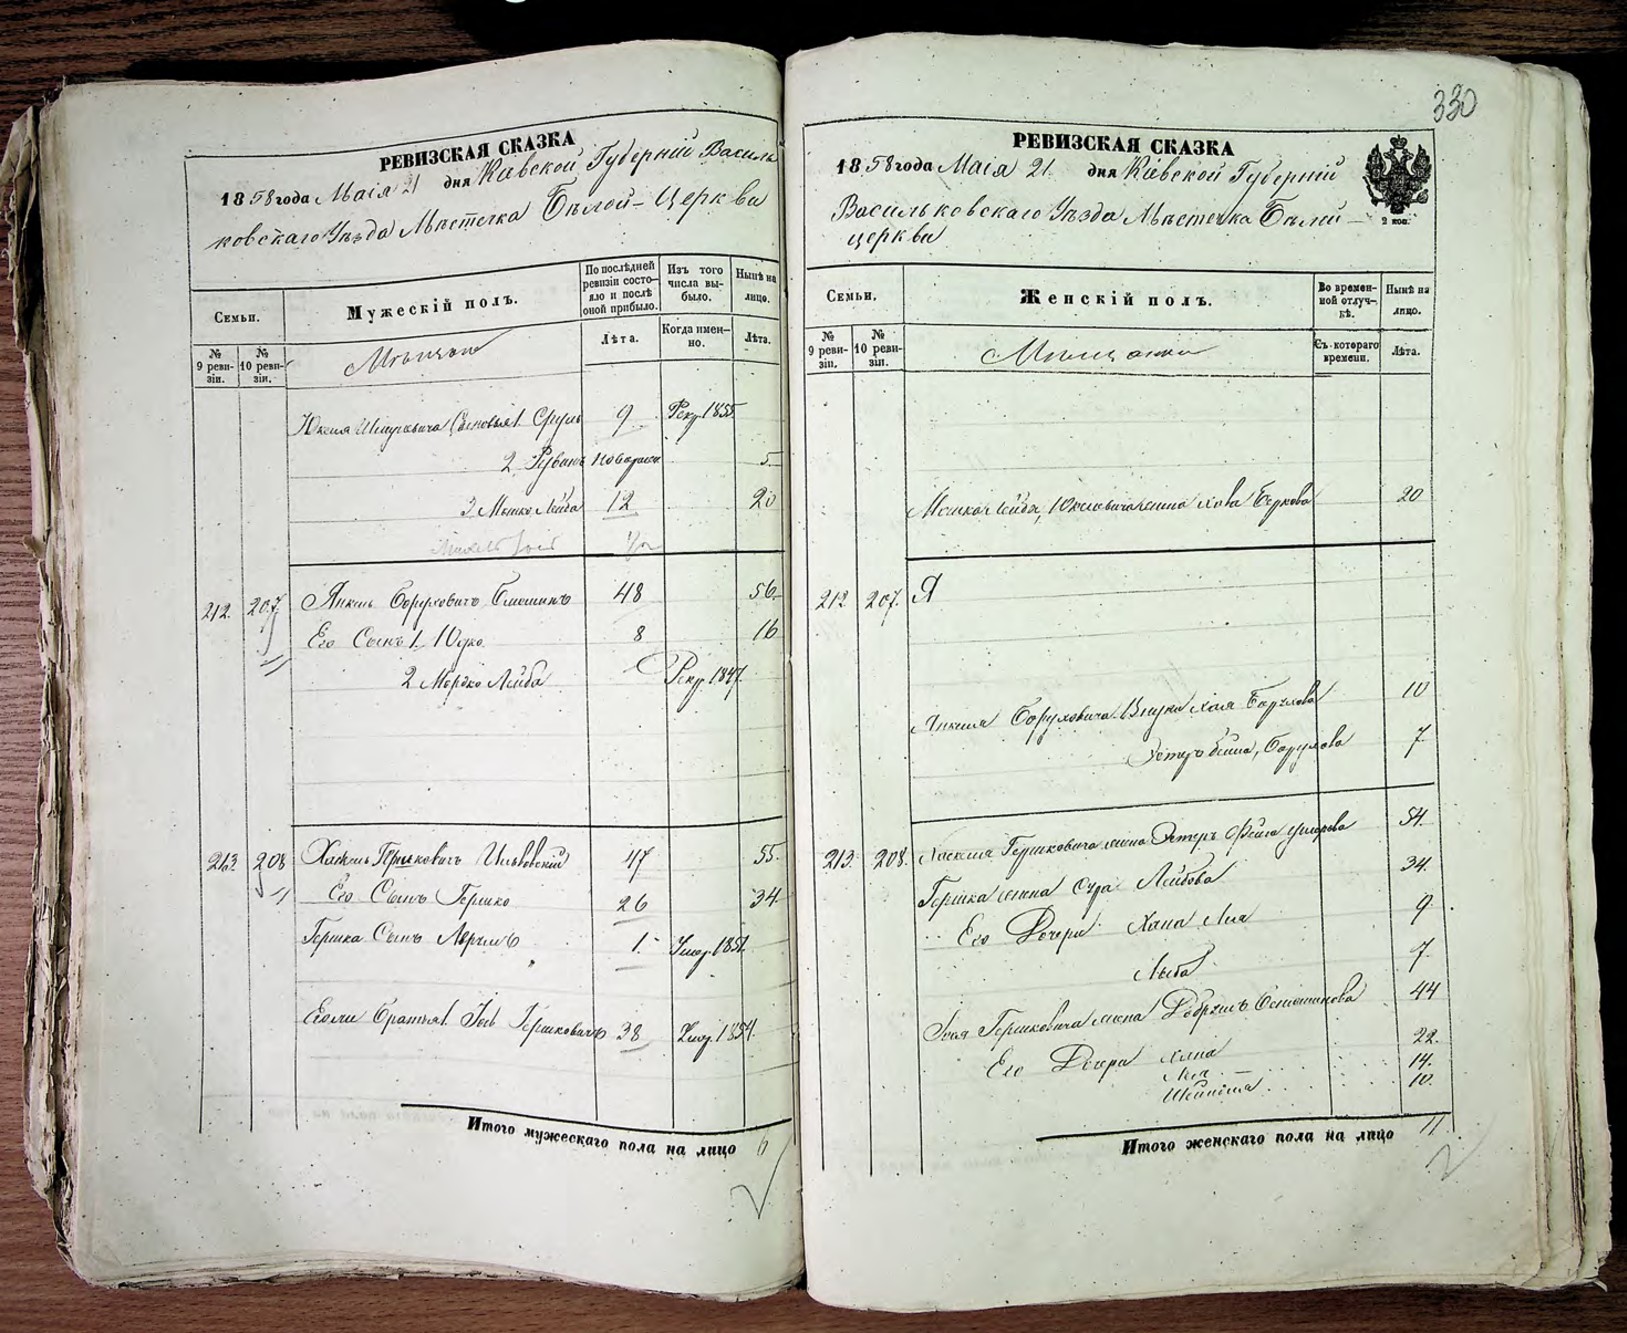 330
РЕВИЗСКАЯ СКАЗКА
1858 года Маія 21 дня Кіевской Губерніи Василь
ковскаго Уѣзда Мѣстечка Бѣлой-Церкви
Семьи.
Мужескій полъ.
По послѣдней ревизіи состояло и послѣ оной прибыло.
Изъ того числа выбыло.
Нынѣ на лицо.
№ 9 ревизіи.
№ 10 ревизіи.
Мѣщане
Лѣта.
Когда именно.
Лѣта.
Юкеля Шмулевича Сыновья 1. Сруль 9 Рекр. 1855
2. Рувинъ 5
3 Мошко Лейба 12 20
212. 207. Янкель Борухович 48 56
Его Сынъ 1. Юдко 8 16
2 Мордко Лейба Рекр. 1847
213. 208 Хаскель Гершковичъ 47 55.
Его Сынъ Гершко 26 34
Гершка Сынъ 1. Умер. 1851
Братья 1. Гершковичъ 38 Умер. 1854.
Итого мужескаго пола на лицо 6
РЕВИЗСКАЯ СКАЗКА
1858 года Маія 21 дня Кіевской Губерніи
Васильковскаго Уѣзда Мѣстечка Бѣлой-
церкви
2 коп.
Семьи.
Женскій полъ.
Во временной отлучкѣ.
Нынѣ на лицо.
№ 9 ревизіи.
№ 10 ревизіи.
Мѣщанки
Съ котораго времени.
Лѣта.
Мошка Лейба, Юкелевича жена Хова Беркова 20
212 207. Я
Янкеля Боруховича Внуки Хая Борухова 10
Эстеръ Бейла, Борухова 7
213. 208. Хаскеля Гершковича жена Эстеръ Фейга 54.
Гершка жена Сура Лейбова 34.
Его Дочери Хана Лея 9
Либа 7
Гершковича жена 44
Его Дочери Хана 22.
Лея 14.
Шейндля 10.
Итого женскаго пола на лицо 11